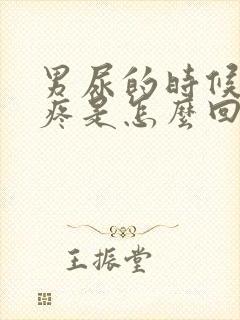 男尿的時候
疼是怎麼回
王振堂